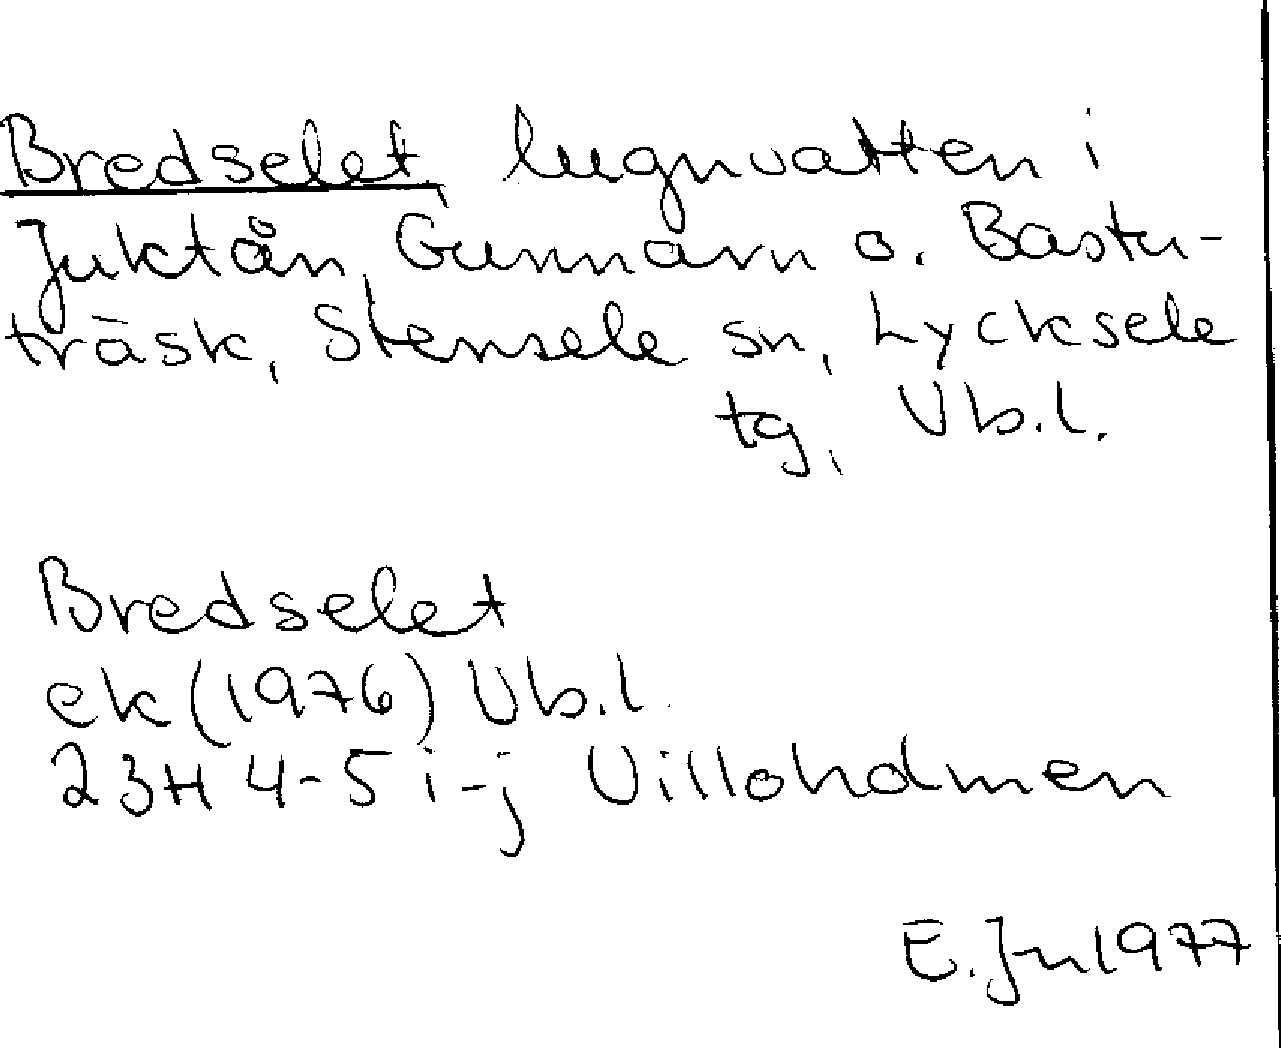 Bredselet, lugnvatten i
Juktån, Gunnarn o. Bastu-
träsk, Stensele sn, Lycksele
tg, Vb.l.
Bredselet
ek (1976) Vb.l.
23H 4-5 i-j Villoholmen
E. Jn 1977